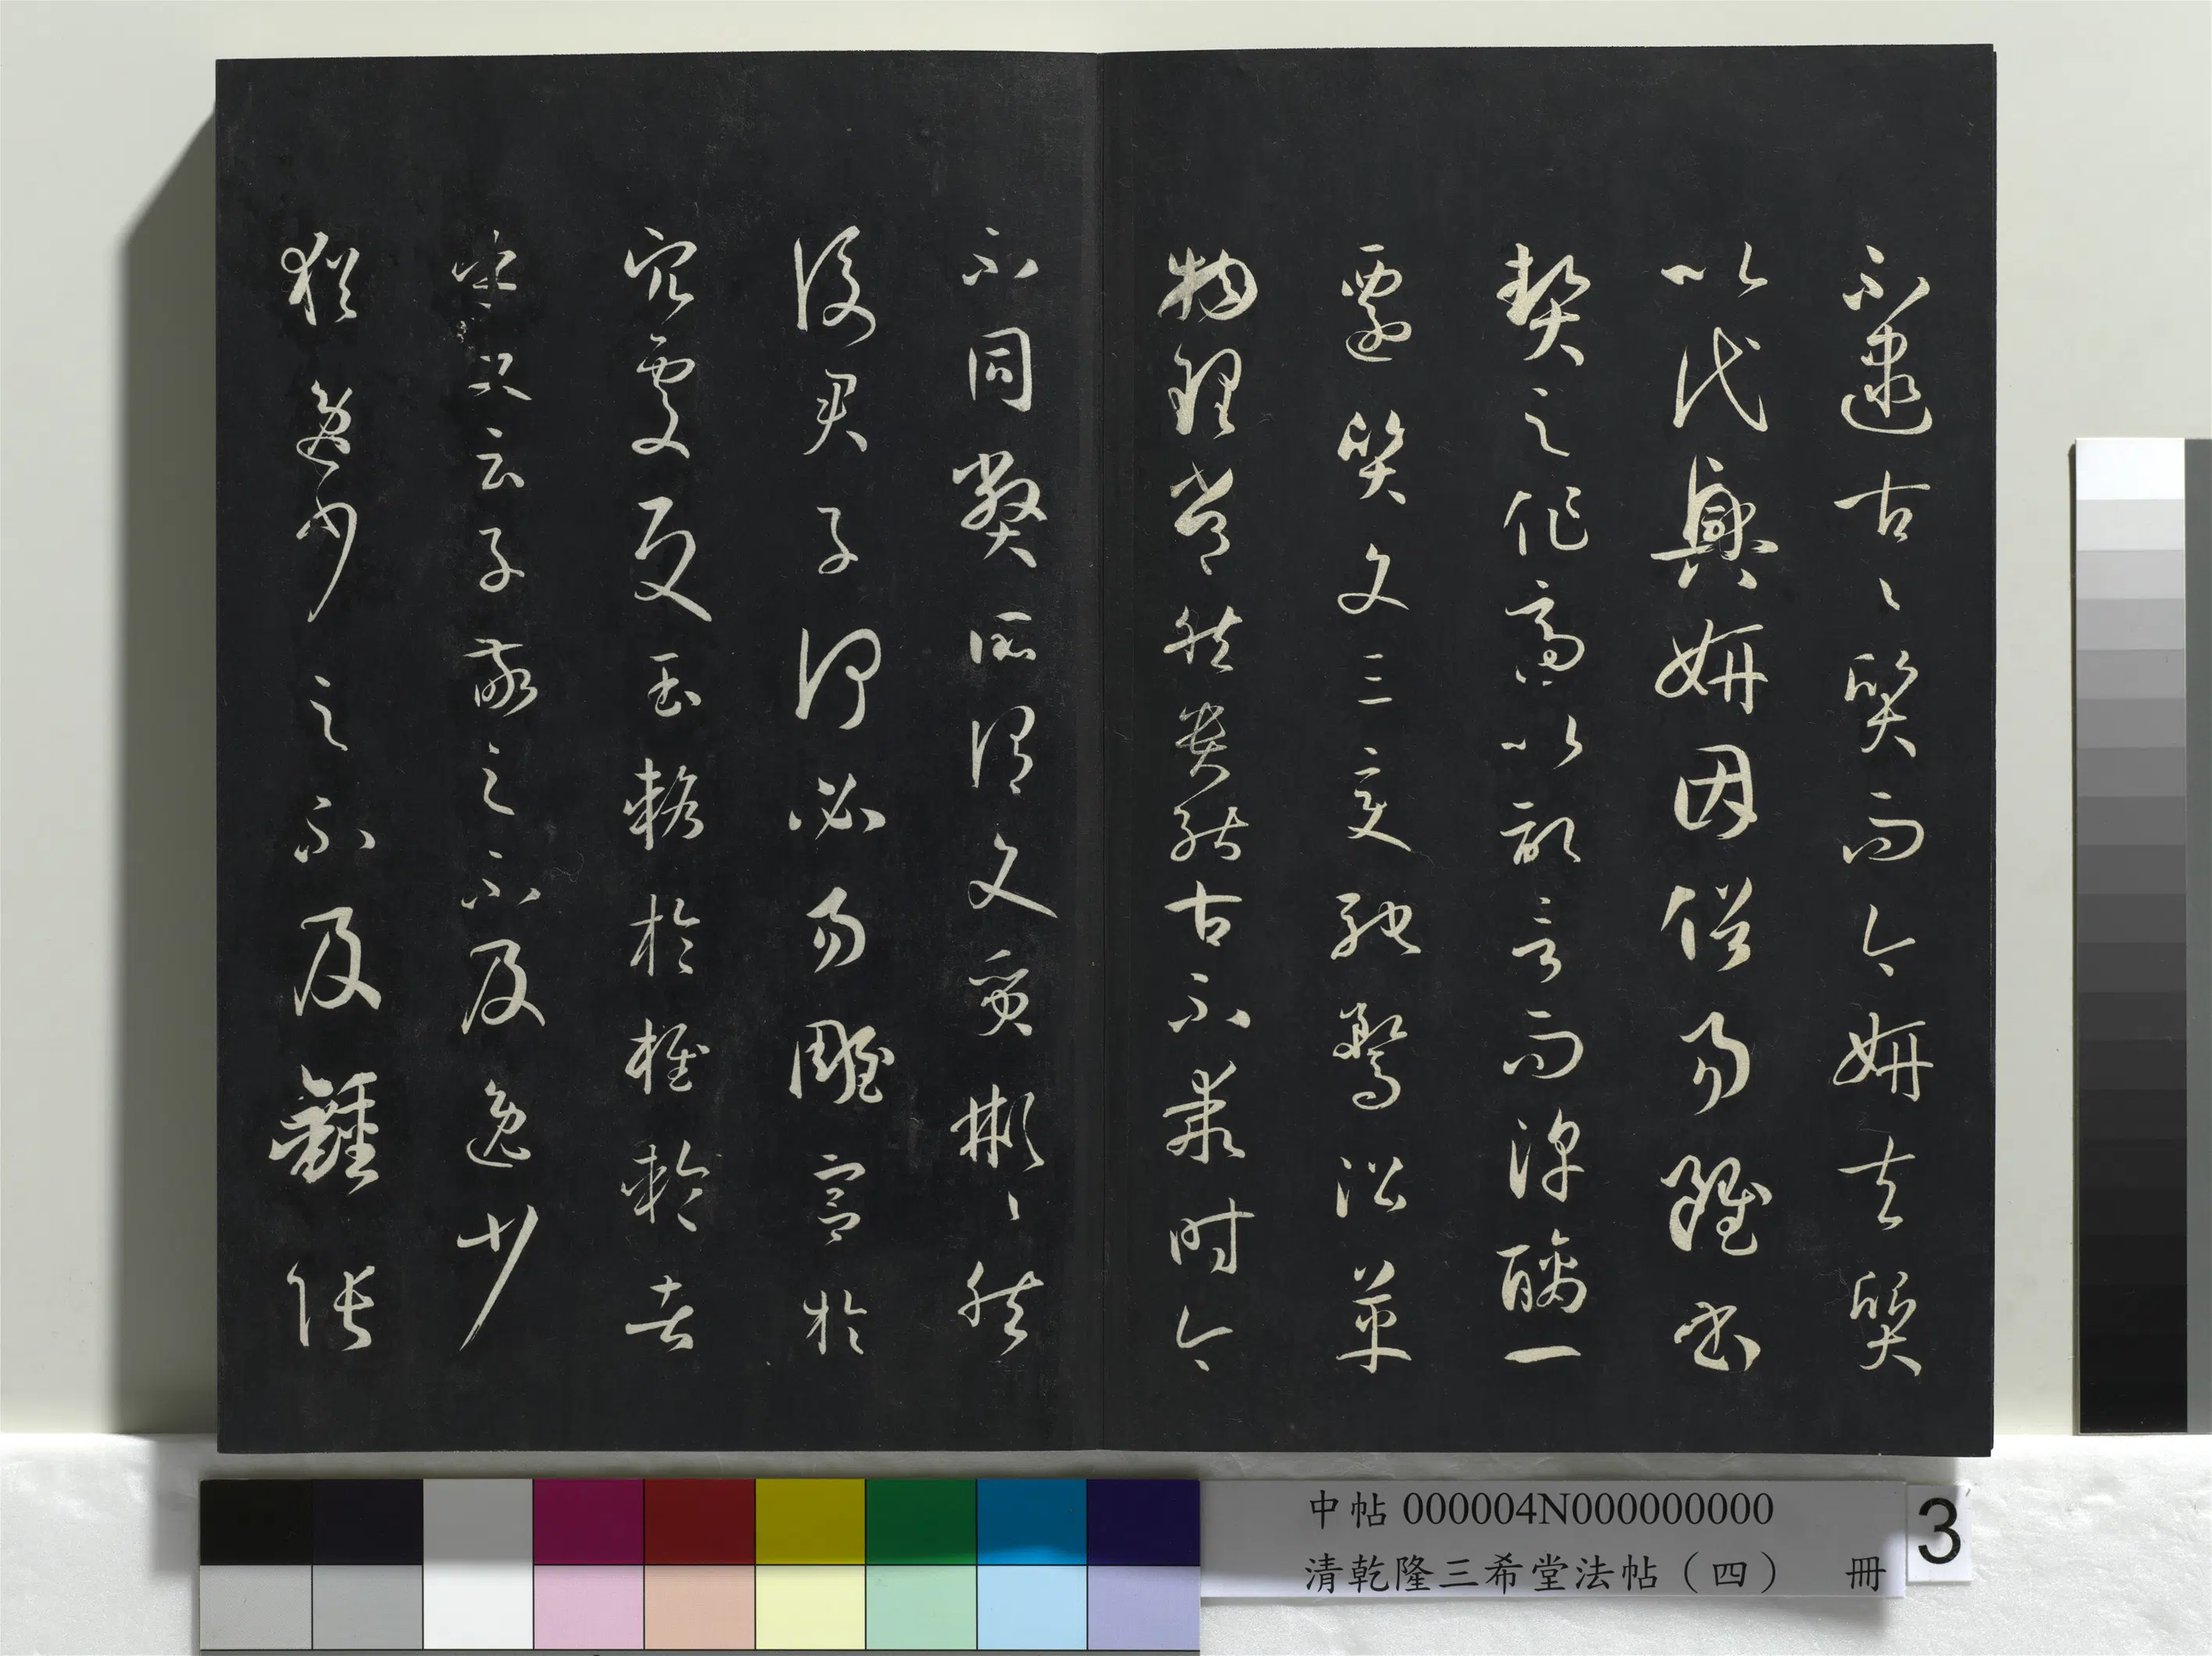 不逮古〻質而今妍夫質
以代興妍因俗易雖書
契之作適以記言而淳醨一
遷質文三變馳騖沿革
物理常然貴能古不乖時今
不同弊所謂文質彬〻然
後君子何必易雕宮於
穴處反玉輅於椎輪者
乎又云子敬之不及逸少
猶逸少之不及鍾張
中帖 000004N000000000
清乾隆三希堂法帖（四） 冊
3